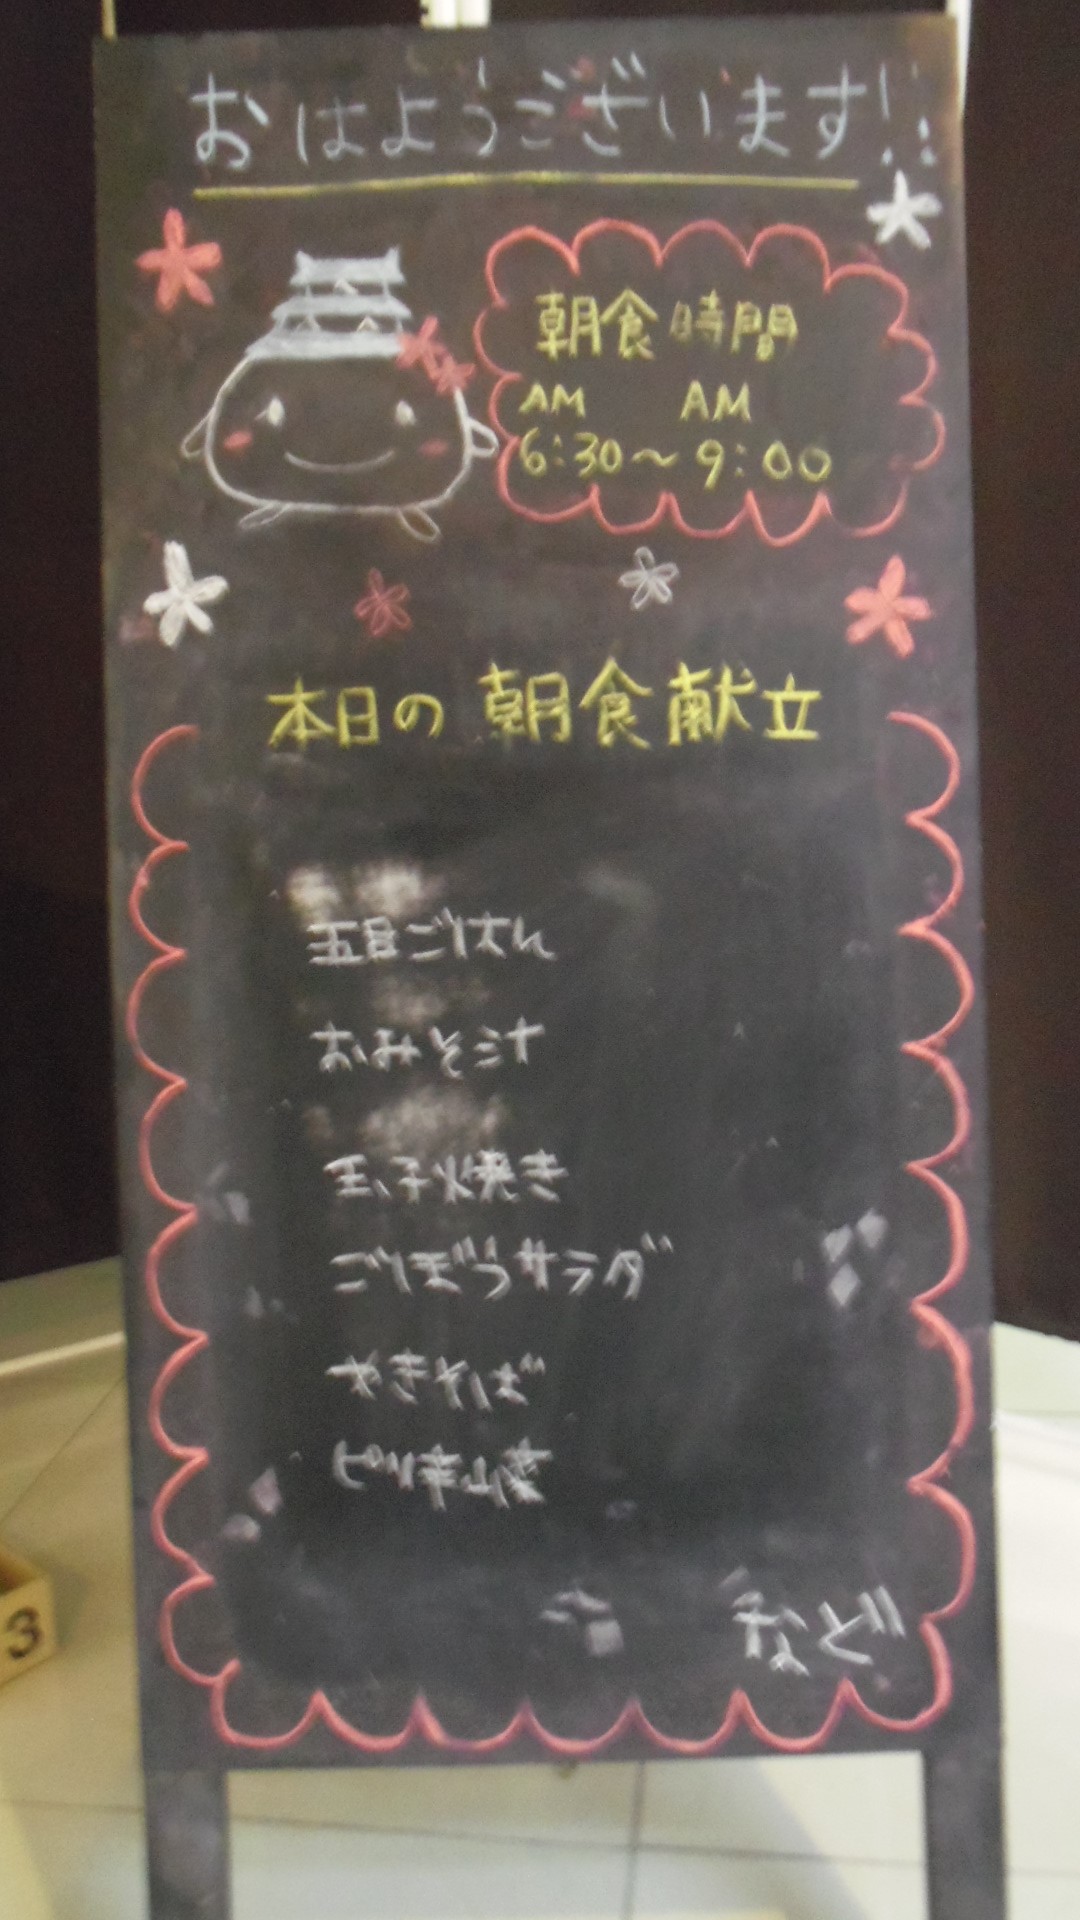 おはようございます!!
朝食時間
AM AM
6:30~9:00
本日の朝食献立
五目ごはん
おみそ汁
玉子焼き
ごぼうサラダ
やきそば
ピリ辛山菜
など
3